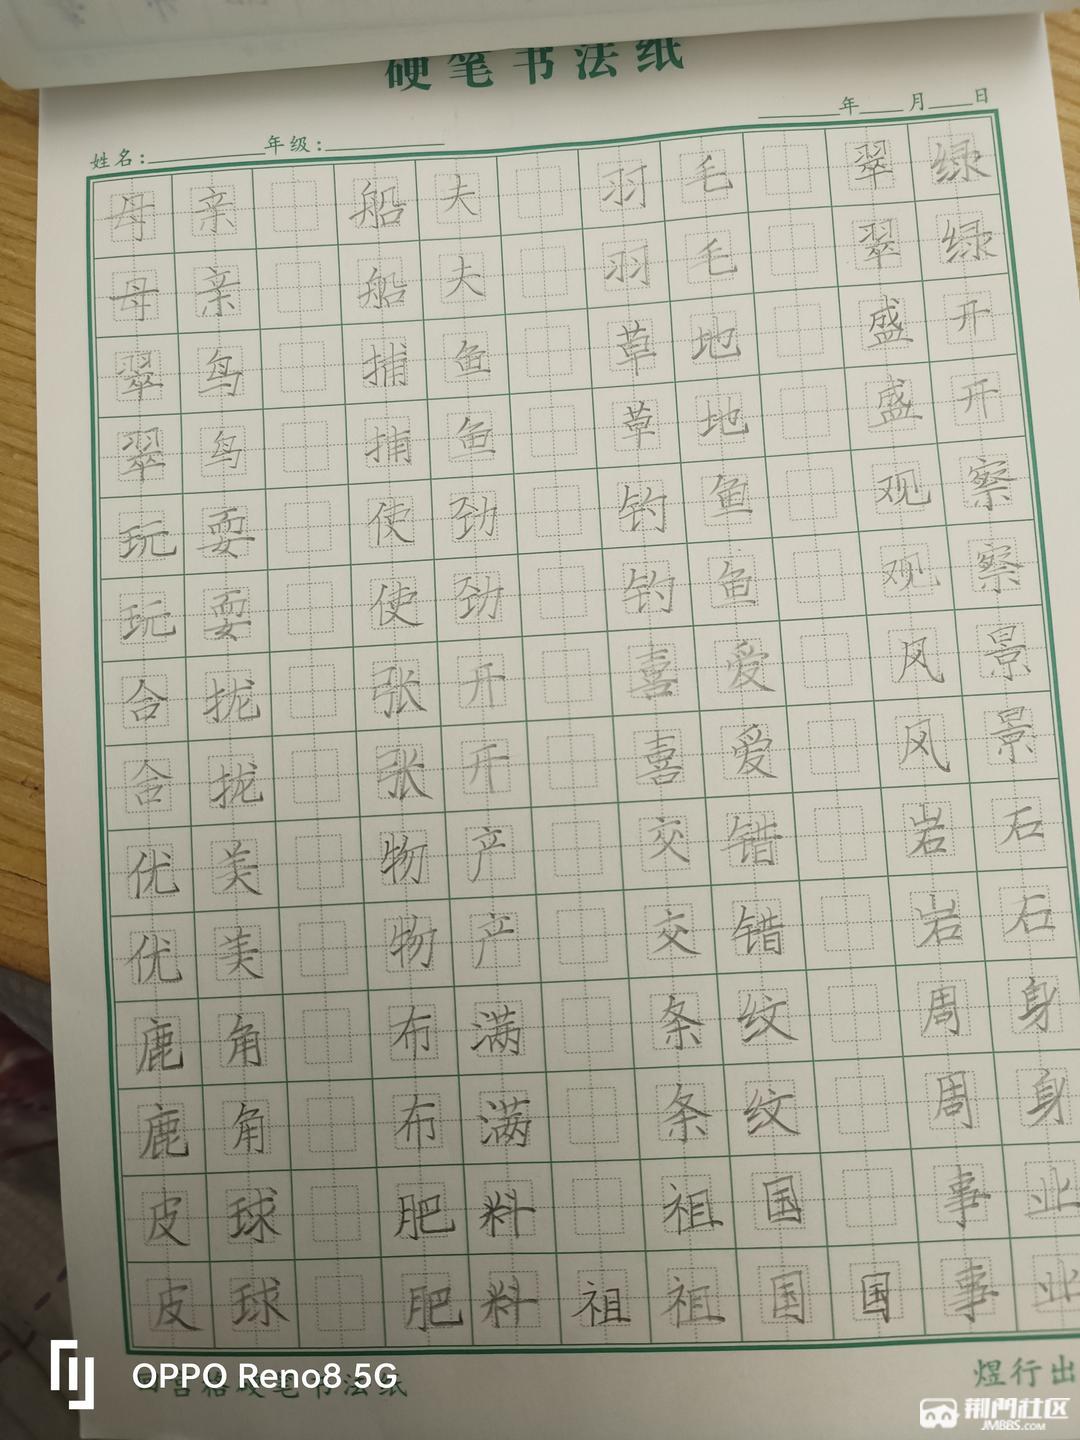 硬笔书法纸
姓名： 年级： 年 月 日
母亲 船夫 羽毛 翠绿
母亲 船夫 羽毛 翠绿
翠鸟 捕鱼 草地 盛开
翠鸟 捕鱼 草地 盛开
玩耍 使劲 钓鱼 观察
玩耍 使劲 钓鱼 观察
合拢 张开 喜爱 风景
合拢 张开 喜爱 风景
优美 物产 交错 岩石
优美 物产 交错 岩石
鹿角 布满 条纹 周身
鹿角 布满 条纹 周身
皮球 肥料 祖国 事业
皮球 肥料 祖祖国国事业
硬笔书法纸 煜行出
OPPO Reno8 5G
荆门社区
JMBBS.COM